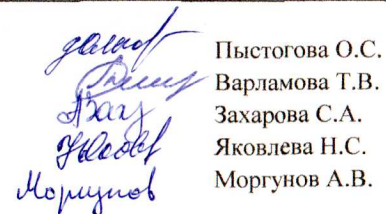 Пыстогова О.С.
Варламова Т.В.
Захарова С.А.
Яковлева Н.С.
Моргунов Моргунов А.В.